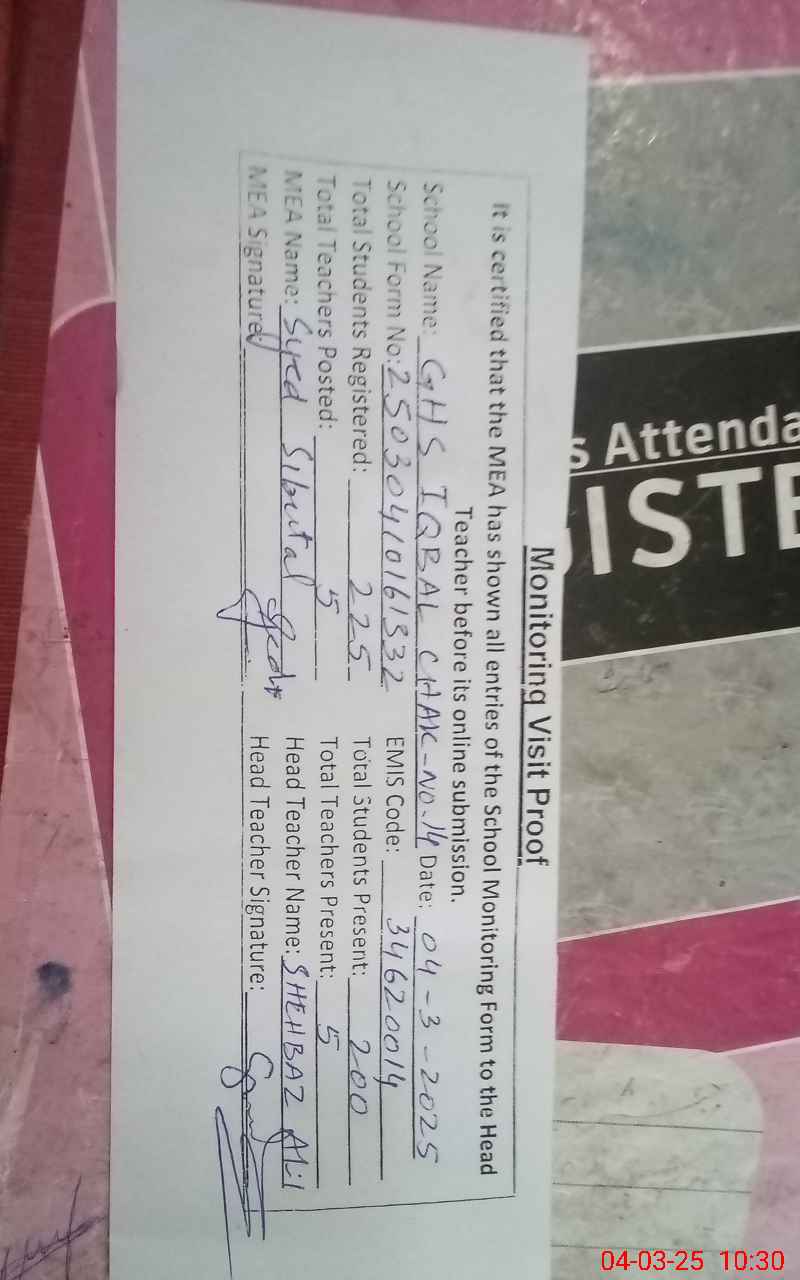 Monitoring Visit Proof
It is certified that the MEA has shown all entries of the School Monitoring Form to the Head
Teacher before its online submission.
School Name: GHS IQBAL CHAK-NO.14 Date: 04-3-2025
School Form No: EMIS Code: 34620014
Total Students Registered: 225 Total Students Present: 200
Total Teachers Posted: 5 Total Teachers Present: 5
MEA Name: Syed Head Teacher Name: SHEHBAZ Ali
MEA Signature Head Teacher Signature:
s Attenda
ISTE
04-03-25 10:30